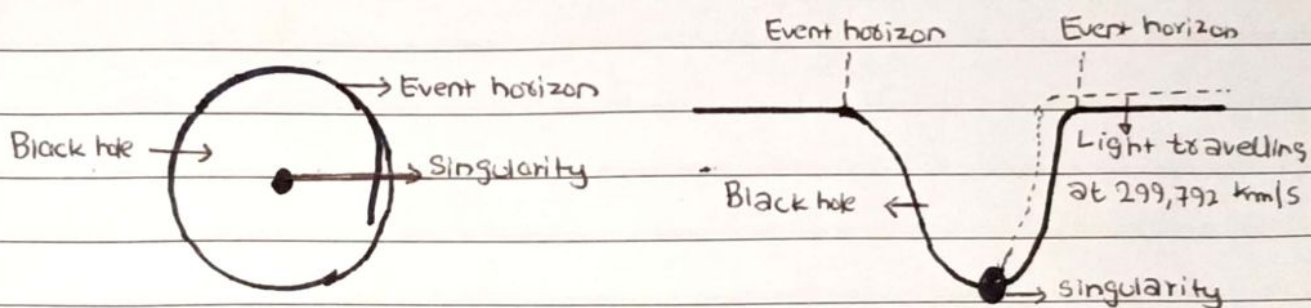 Event horizon
Black hole
Singularity
Event horizon
Event horizon
Light travelling
at 299,792 km/s
Black hole
singularity